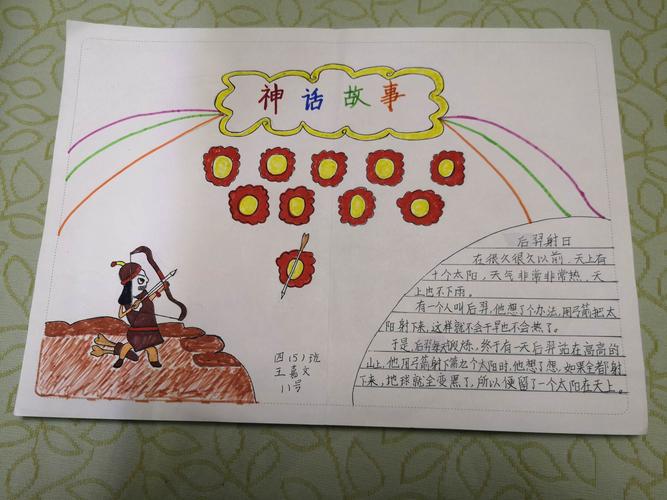 神话故事
后羿射日
在很久很久以前,天上有
十个太阳,天气非常非常热,天
上也不下雨。
有一个人叫后羿,他想了个办法,用弓箭把太
阳射下来,这样就不会干旱也不会热了。
于是,后羿每天锻炼,终于有一天后羿站在高高的
山上,他用弓箭射下第九个太阳时,他想了想,如果全都射
下来,地球就全变黑了,所以便留了一个太阳在天上。
四(5)班
王嘉文
11号